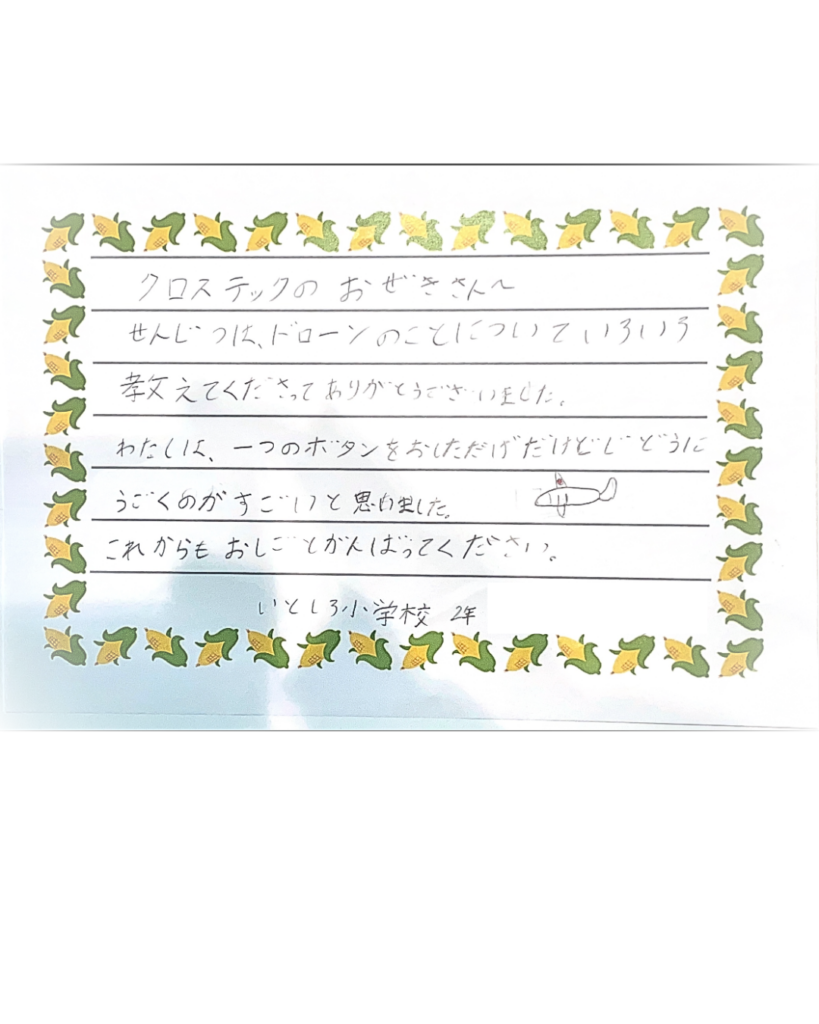 クロステックの おぜきさんへ
せんじつは、ドローンのことについていろいろ
教えてくださってありがとうございました。
わたしは、一つのボタンをおしただけだけどじどうに
うごくのがすごいと思いました。
これからもおしごとがんばってください。
いとしろ小学校 2年